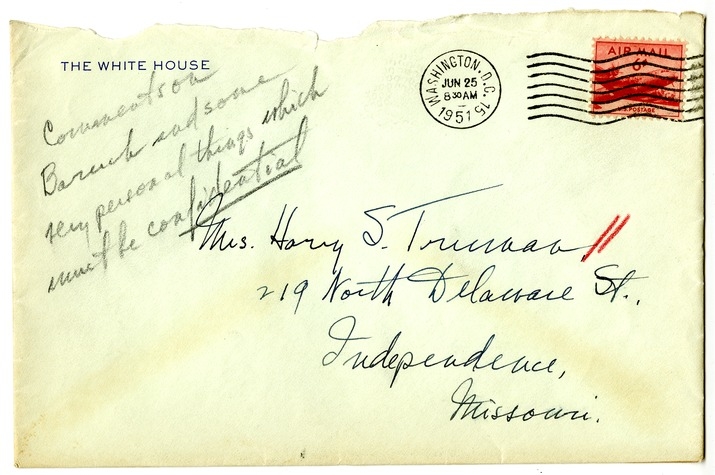 THE WHITE HOUSE
Comments on
Baruch and some
very personal things which
must be confidential
WASHINGTON, D.C. 15
JUN 25
8 30 AM
1951
AIR MAIL
6¢
U.S. POSTAGE
Mrs. Harry S. Truman
219 North Delaware St.,
Independence,
Missouri.